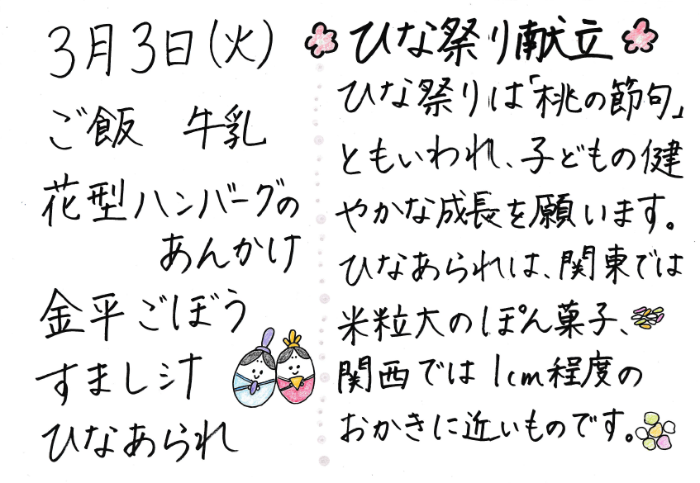 3月3日(火)
ご飯 牛乳
花型ハンバーグの
あんかけ
金平ごぼう
すまし汁
ひなあられ
ひな祭り献立
ひな祭りは「桃の節句」
ともいわれ、子どもの健
やかな成長を願います。
ひなあられは、関東では
米粒大のぽん菓子、
関西では1cm程度の
おかきに近いものです。